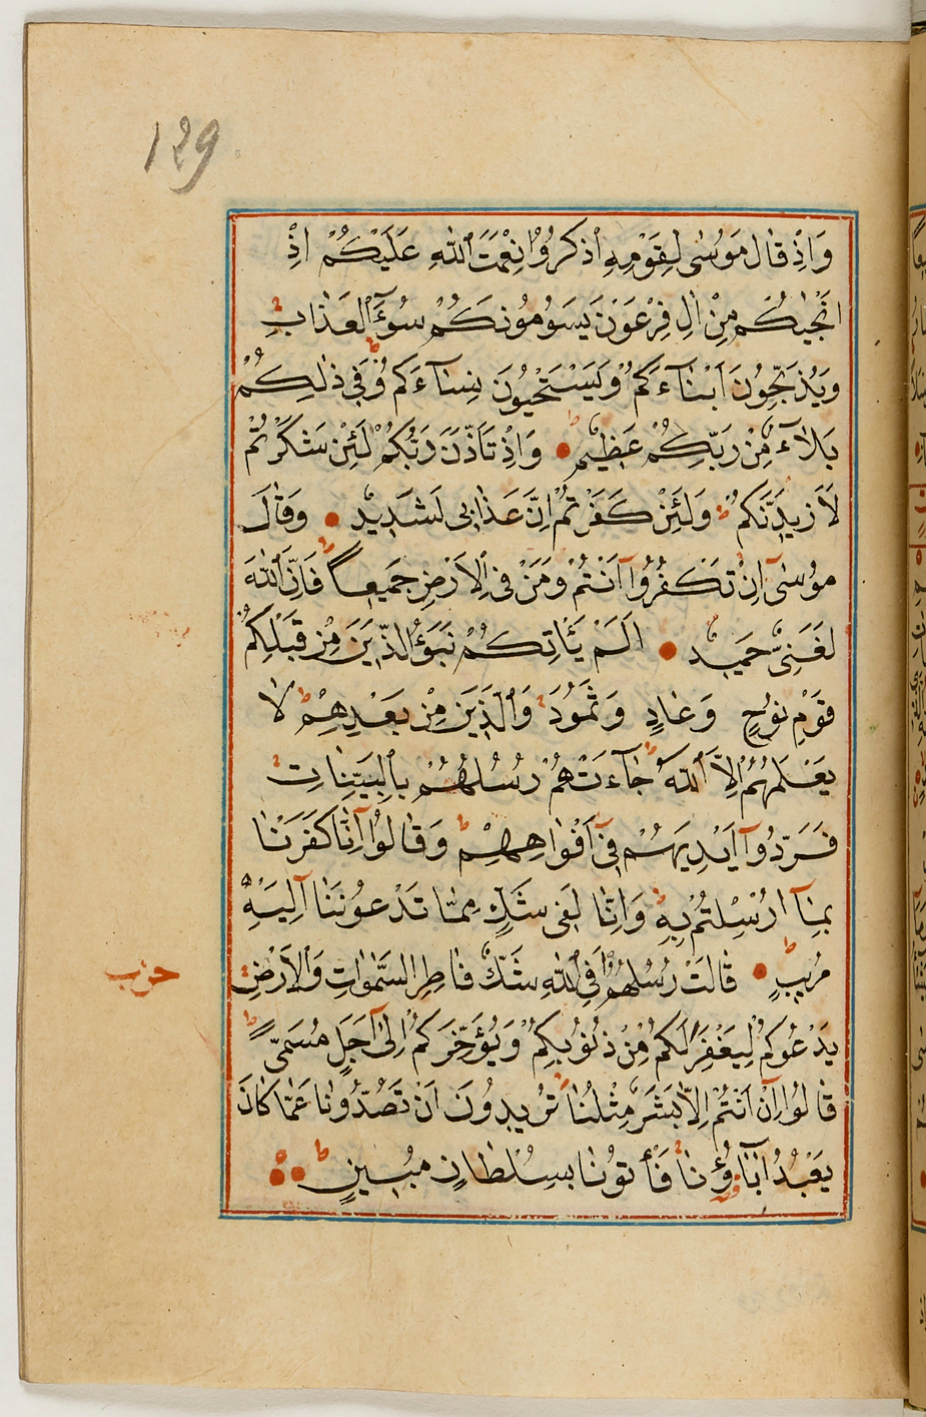 129
وَاِذْ قَالَ مُوسٰى لِقَوْمِهِ اذْكُرُوا نِعْمَتَ اللّٰهِ عَلَيْكُمْ اِذْ
اَنْجٰيكُمْ مِنْ اٰلِ فِرْعَوْنَ يَسُومُونَكُمْ سُوٓءَ الْعَذَابِ ط
وَيُذَبِّحُونَ اَبْنَٓاءَكُمْ وَيَسْتَحْيُونَ نِسَٓاءَكُمْ ط وَفِى ذٰلِكُمْ
بَلَٓاءٌ مِنْ رَبِّكُمْ عَظِيمٌ وَاِذْ تَاَذَّنَ رَبُّكُمْ لَئِنْ شَكَرْتُمْ
لَاَزِيدَنَّكُمْ ط وَلَئِنْ كَفَرْتُمْ اِنَّ عَذَابِى لَشَدِيدٌ وَقَالَ
مُوسٰٓى اِنْ تَكْفُرُٓوا اَنْتُمْ وَمَنْ فِى الْاَرْضِ جَمِيعًا ط فَاِنَّ اللّٰهَ
لَغَنِىٌّ حَمِيدٌ اَلَمْ يَأْتِكُمْ نَبَؤُا الَّذِينَ مِنْ قَبْلِكُمْ
قَوْمِ نُوحٍ وَعَادٍ وَثَمُودَ وَالَّذِينَ مِنْ بَعْدِهِمْ ط لَا
يَعْلَمُهُمْ اِلَّا اللّٰهُ ط جَٓاءَتْهُمْ رُسُلُهُمْ بِالْبَيِّنَاتِ
فَرَدُّٓوا اَيْدِيَهُمْ فِٓى اَفْوَاهِهِمْ ط وَقَالُٓوا اِنَّا كَفَرْنَا
بِمَٓا اُرْسِلْتُمْ بِهِ وَاِنَّا لَفِى شَكٍّ مِمَّا تَدْعُونَنَٓا اِلَيْهِ
مُرِيبٍ قَالَتْ رُسُلُهُمْ اَفِى اللّٰهِ شَكٌّ فَاطِرِ السَّمٰوَاتِ وَالْاَرْضِ ط
حزب
يَدْعُوكُمْ لِيَغْفِرَ لَكُمْ مِنْ ذُنُوبِكُمْ وَيُؤَخِّرَكُمْ اِلٰٓى اَجَلٍ مُسَمًّى ط
قَالُٓوا اِنْ اَنْتُمْ اِلَّا بَشَرٌ مِثْلُنَا ط تُرِيدُونَ اَنْ تَصُدُّونَا عَمَّا كَانَ
يَعْبُدُ اٰبَٓاؤُنَا فَأْتُونَا بِسُلْطَانٍ مُبِينٍ ط